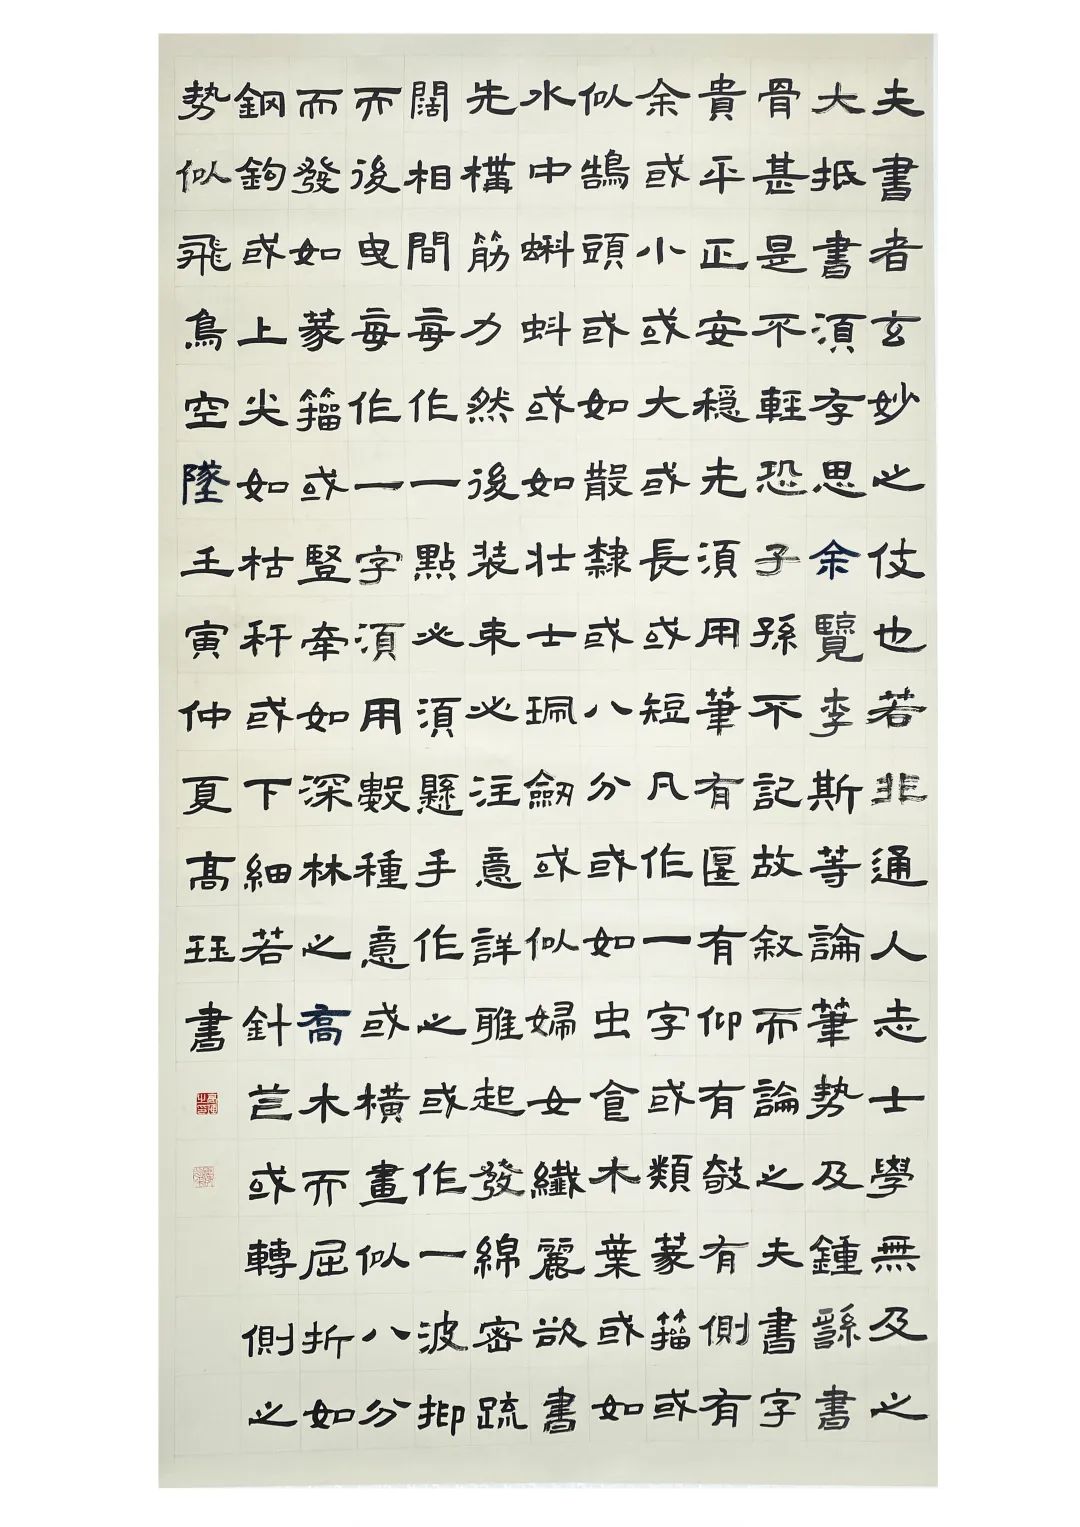 夫書者玄妙之伎也若非通人志士學無及之
大抵書須存思余覽李斯等論筆勢及鍾繇書
骨甚是不輕恐子孫不記故敘而論之夫書字
貴平正安穩先須用筆有偃有仰有敧有側有
余或小或大或長或短凡作一字或類篆籀或
似鵠頭或如散隸或八分或如虫食木葉或如
水中蝌蚪或如壮士珮劔或似婦女纖麗欲書
先構筋力然後装束必注意詳雅起發綿密疏
闊相間每作一點必須懸手作之或作一波抑
而後曳每作一字須用數種意或橫畫似八分
而發如篆籀或豎牽如深林之喬木而屈折如
鋼鉤或上尖如枯秆或下細若針芒或轉側之
勢似飛鳥空墜壬寅仲夏高珏書